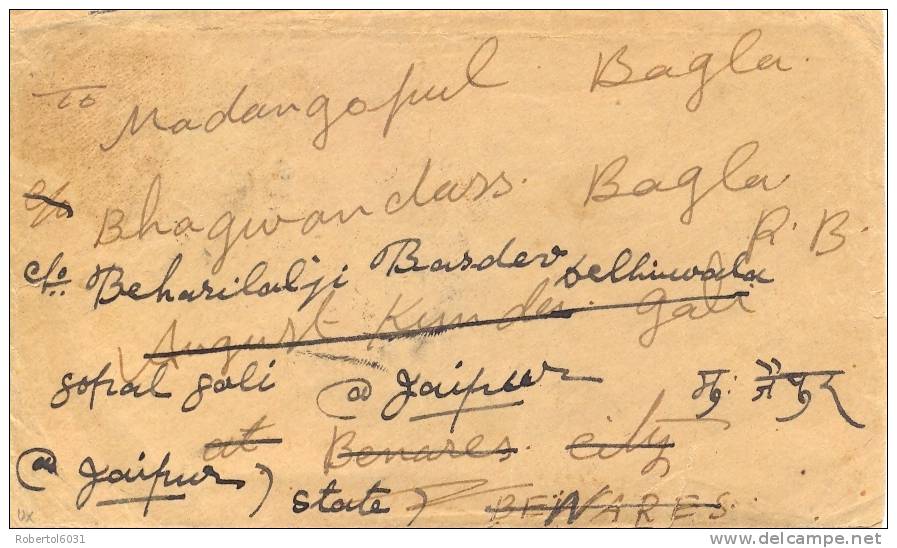 To
Madangopul Bagla.
c/o Bhagwandass. Bagla.
R. B.
c/o. Beharilalji Basdev Delhiwala
August Kunda. Gali
gopal gali @ Jaipur मु: जैपुर
at Benares city
@ Jaipur) state)
BENARES.
Robertol6031
delcampe.net